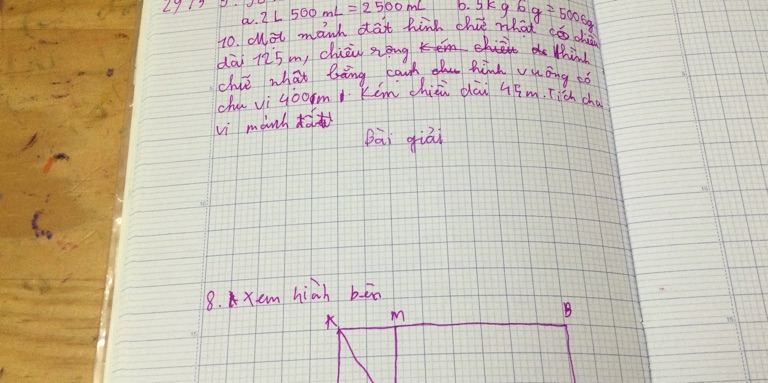 a. 2L 500 mL = 2500 mL b. 5kg 6g = 5006g
10. Một mảnh đất hình chữ nhật có chiều
dài 125m, chiều rộng hình
chữ nhật bằng cạnh hình vuông có
chu vi 400m. Kém chiều dài 45m. Tích chu
vi mảnh
Bài giải
8. Xem hình bên
A M B